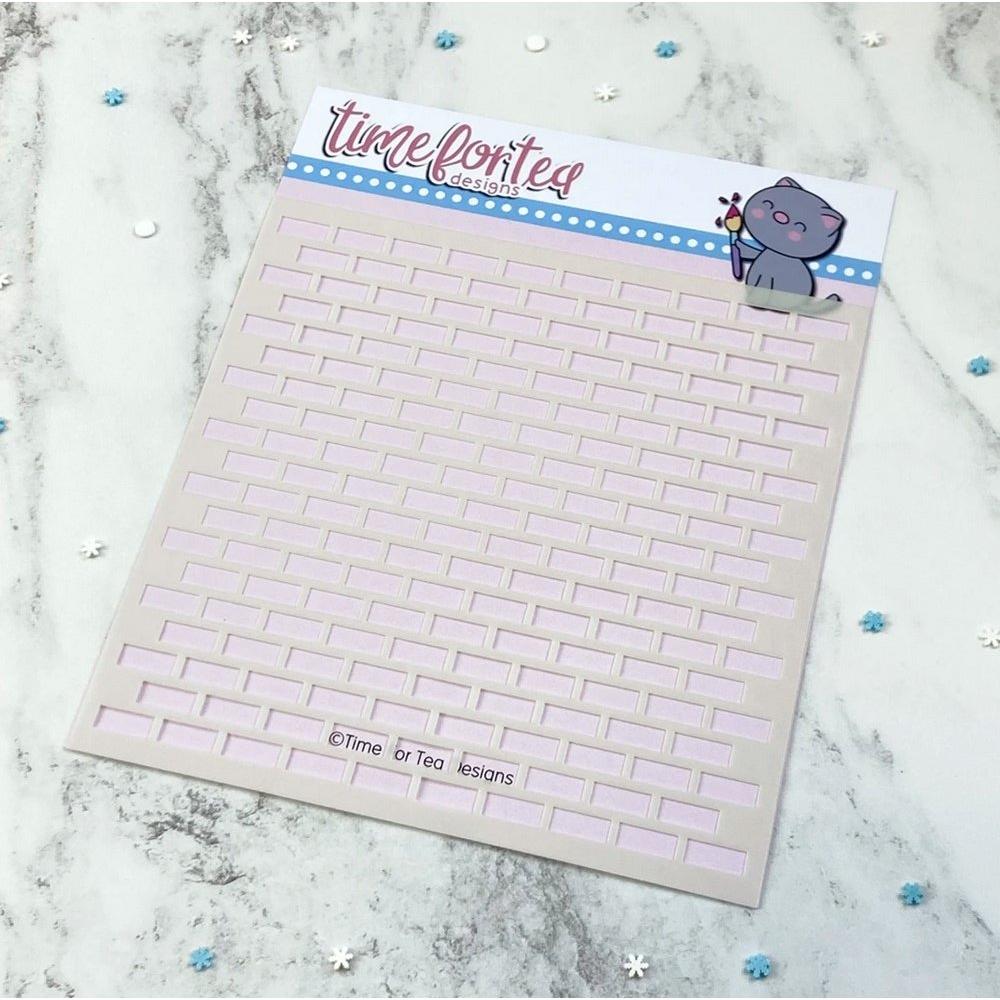 time for tea
designs
©Time for Tea Designs